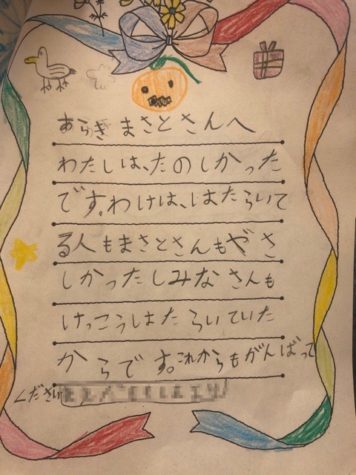 あらぎ まさとさんへ
わたしは、たのしかった
です。わけは、はたらいて
る人もまさとさんもやさ
しかったしみなさんも
けっこうはたらいていた
からです。これからもがんばって
ください